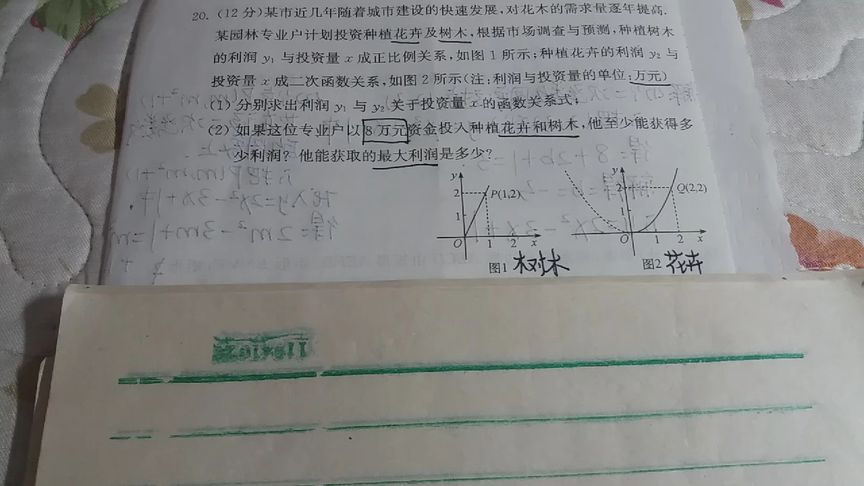 20. (12分)某市近几年随着城市建设的快速发展,对花木的需求量逐年提高.
某园林专业户计划投资种植花卉及树木,根据市场调查与预测,种植树木
的利润 y₁ 与投资量 x 成正比例关系,如图1所示;种植花卉的利润 y₂ 与
投资量 x 成二次函数关系,如图2所示(注:利润与投资量的单位:万元)
(1) 分别求出利润 y₁ 与 y₂ 关于投资量 x 的函数关系式;
(2) 如果这位专业户以8万元资金投入种植花卉和树木,他至少能获得多
少利润?他能获取的最大利润是多少?
y
2
P(1,2)
1
O 1 2 x
图1 树木
y
2
Q(2,2)
1
O 1 2 x
图2 花卉